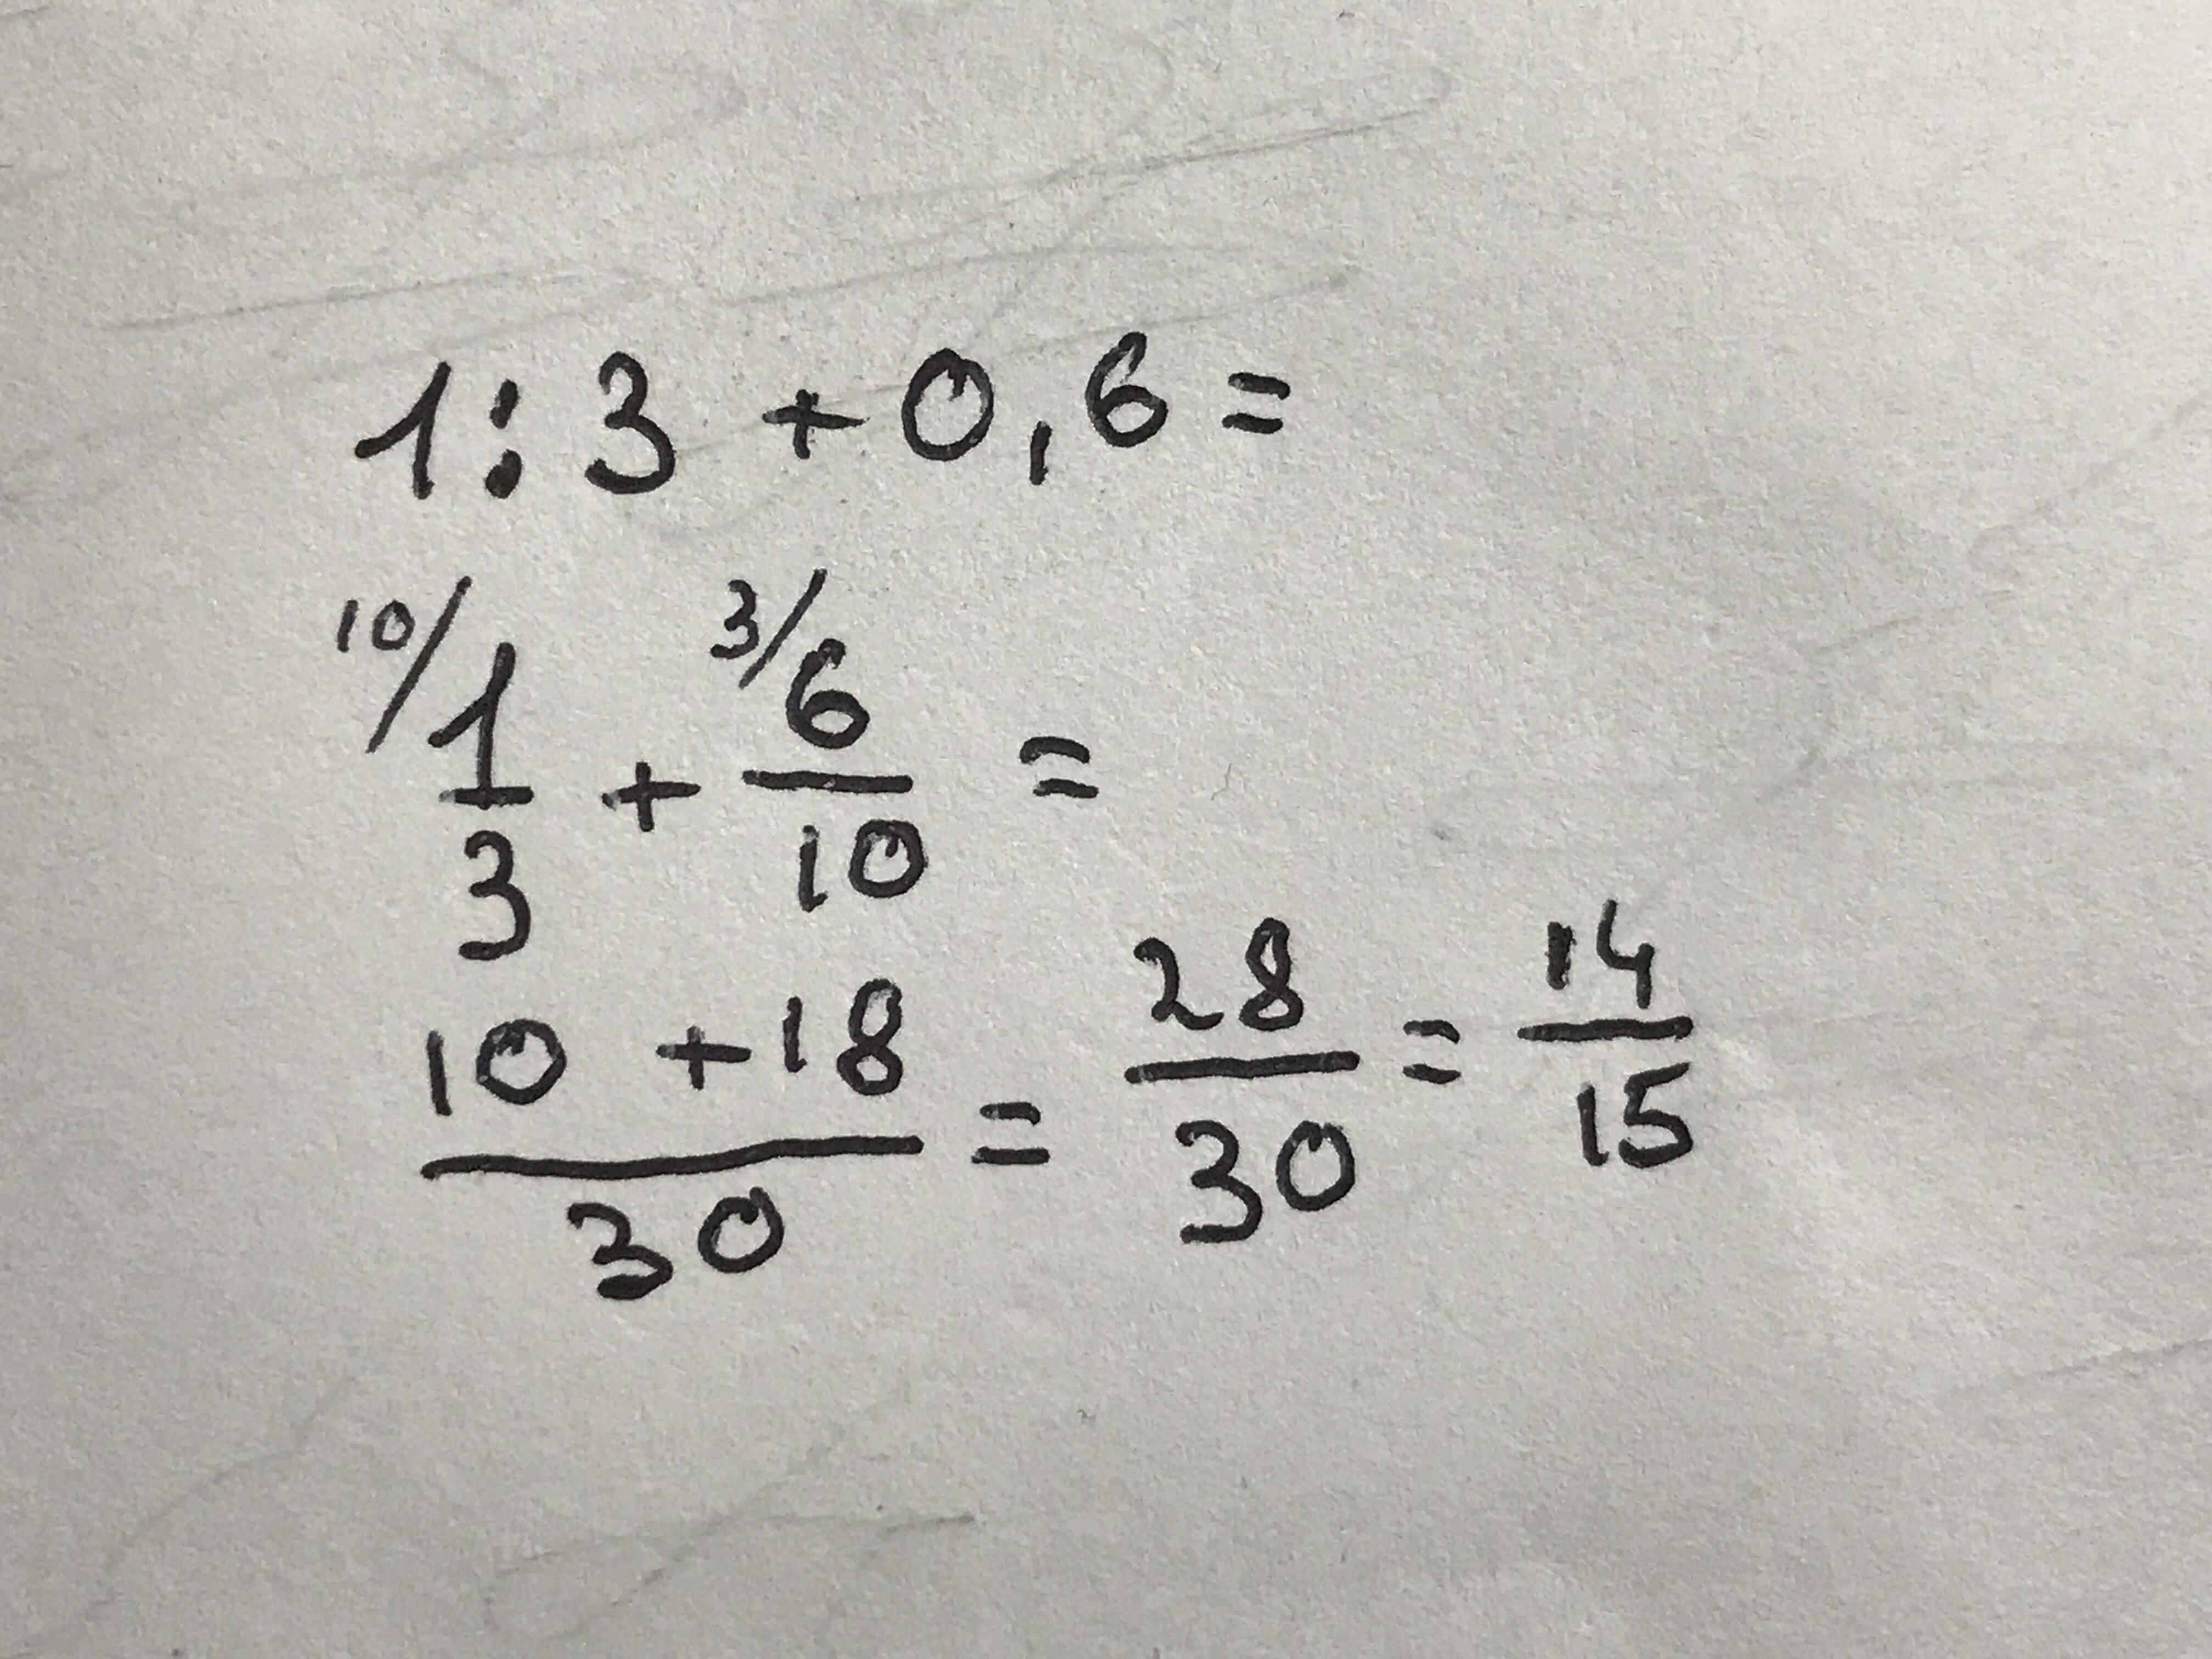 1:3+0,6=
10/ 1/3 + 3/ 6/10 =
(10+18)/30 = 28/30 = 14/15